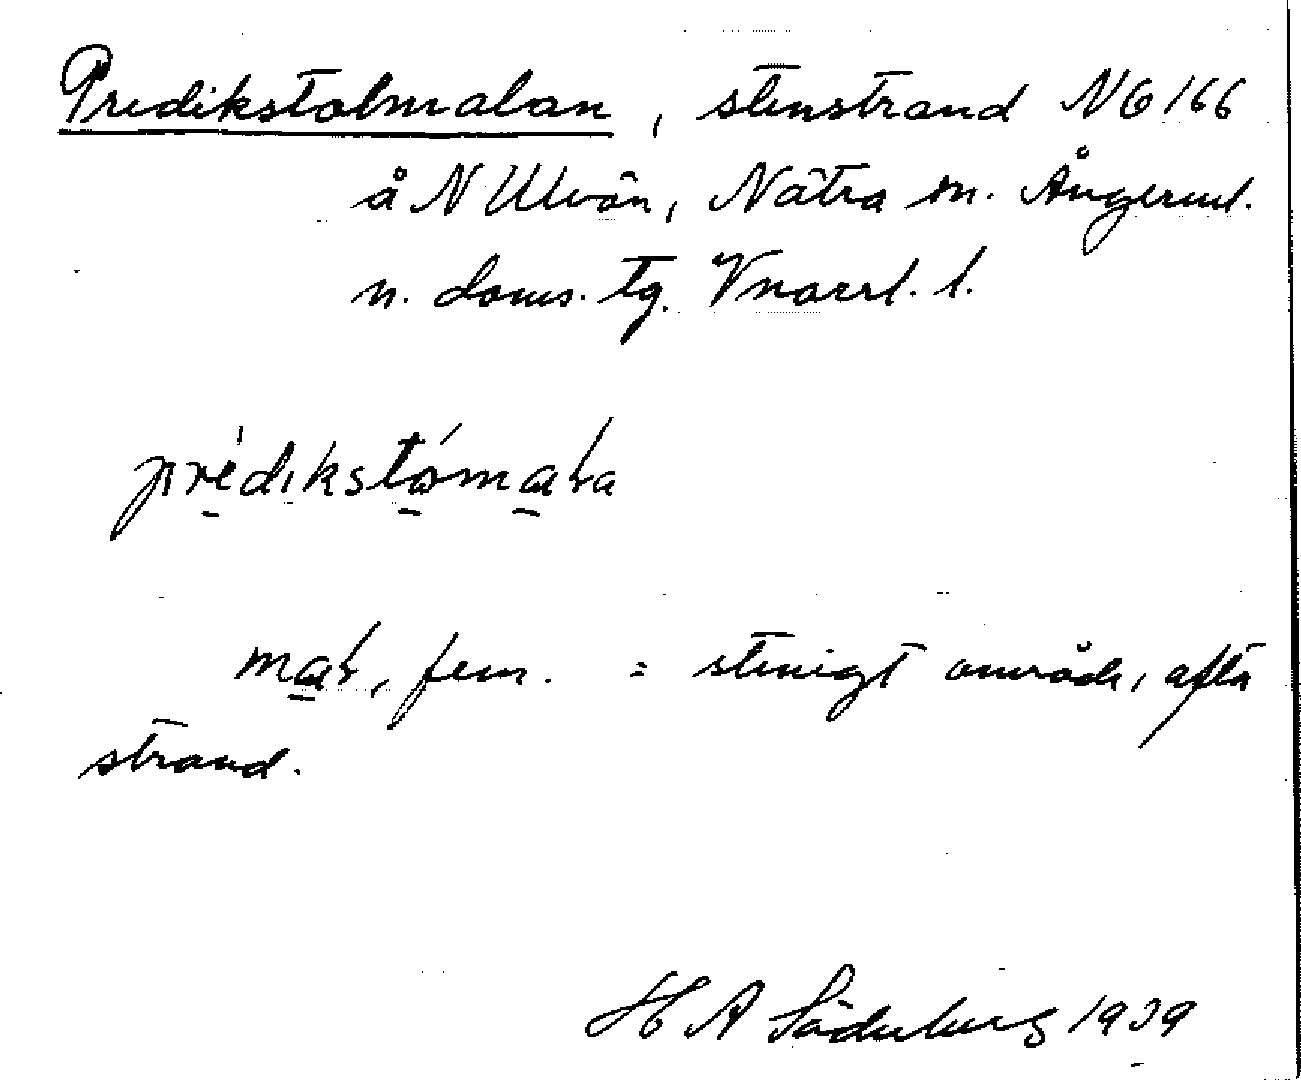 Predikstolmalan, stenstrand NG 166
å N Ulvön, Nätra sn. Ångerml.
n. doms. tg. Vnorrl. l.
predikstómaɽa
maɽ, fem. = stenigt område, ofta
strand.
H A Söderberg 1939